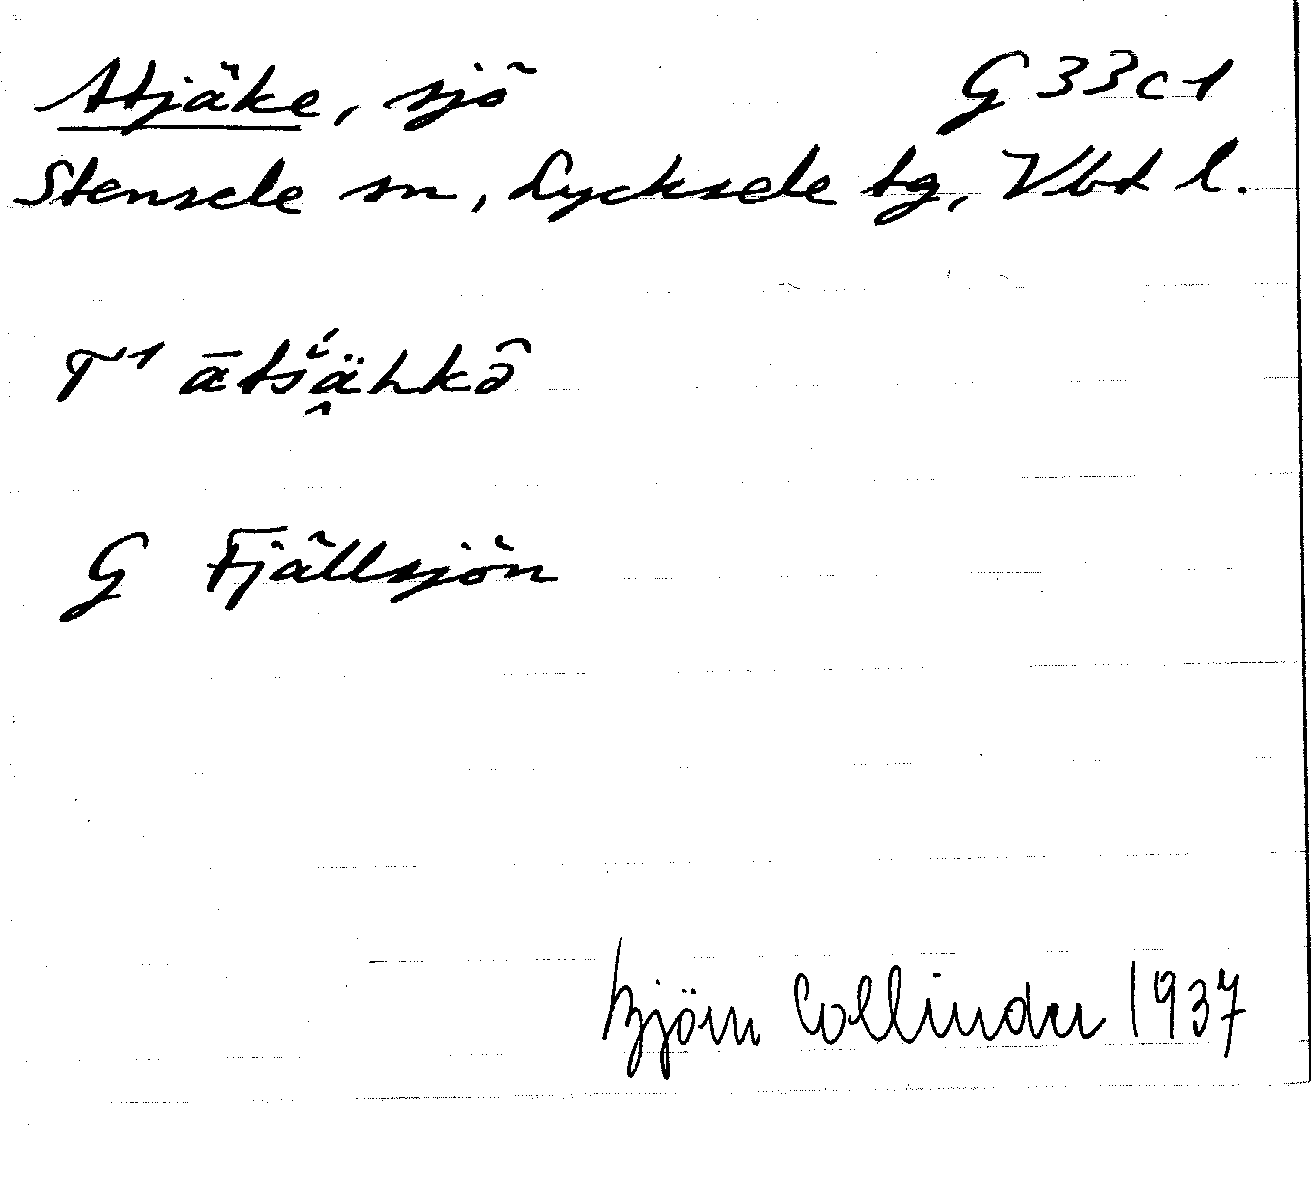 Atjäke, sjö G 33 c 1
Stensele sn, Lycksele tg, Vbt l.
T1
G Fjällsjön
Björn Collinder 1937